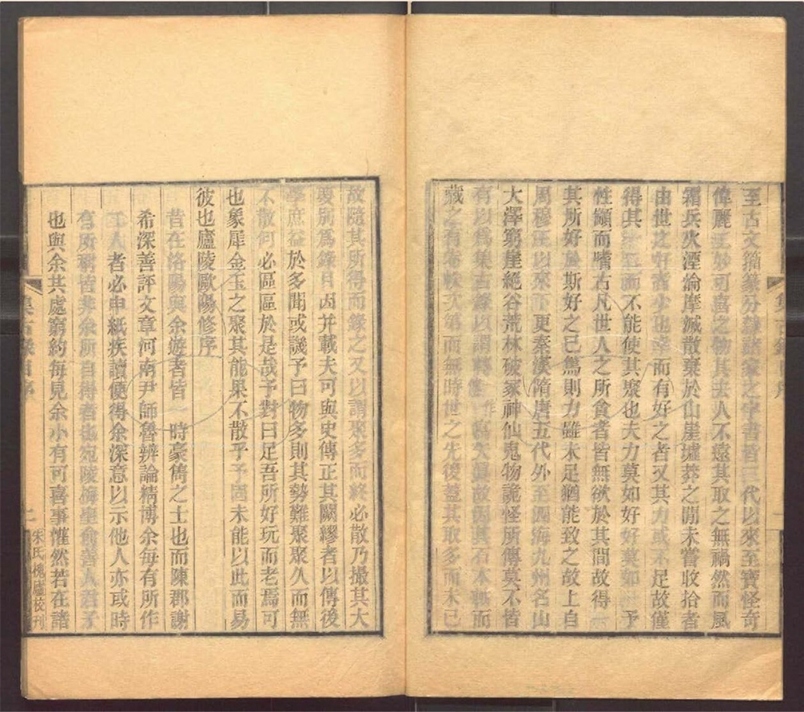 至古文籀篆分隸諸家之字書皆三代以來至寶怪奇
偉麗工妙可喜之物其去人不遠其取之無禍然而風
霜兵火湮淪磨滅散棄於山崖墟莽之間未嘗收拾者
由世之好者少也幸而有好之者又其力或不足故僅
得其一二而不能使其聚也夫力莫如好好莫如一予
性顓而嗜古凡世人之所貪者皆無欲於其間故得一
其所好於斯好之已篤則力雖未足猶能致之故上自
周穆王以來下更秦漢隋唐五代外至四海九州名山
大澤窮崖絕谷荒林破冢神仙鬼物詭怪所傳莫不皆
有以爲集古錄以謂轉寫失眞故因其石本軸而
藏之有卷帙次第而無時世之先後蓋其取多而未已
故隨其所得而錄之又以謂聚多而終必散乃撮其大
要別爲錄目因并載夫可與史傳正其闕繆者以傳後
學庶益於多聞或譏予曰物多則其勢難聚聚久而無
不散何必區區於是哉予對曰足吾所好玩而老焉可
也象犀金玉之聚其能果不散乎予固未能以此而易
彼也廬陵歐陽修序
昔在洛陽與余遊者皆一時豪雋之士也而陳郡謝
希深善評文章河南尹師魯辨論精博余每有所作
二人者必申紙疾讀便得余深意以示他人亦或時
有所稱皆非余所自得者也宛陵梅聖俞善人君子
也與余共處窮約每見余小有可喜事懽然若在諸
集古錄目序
二
朱氏槐廬校刊